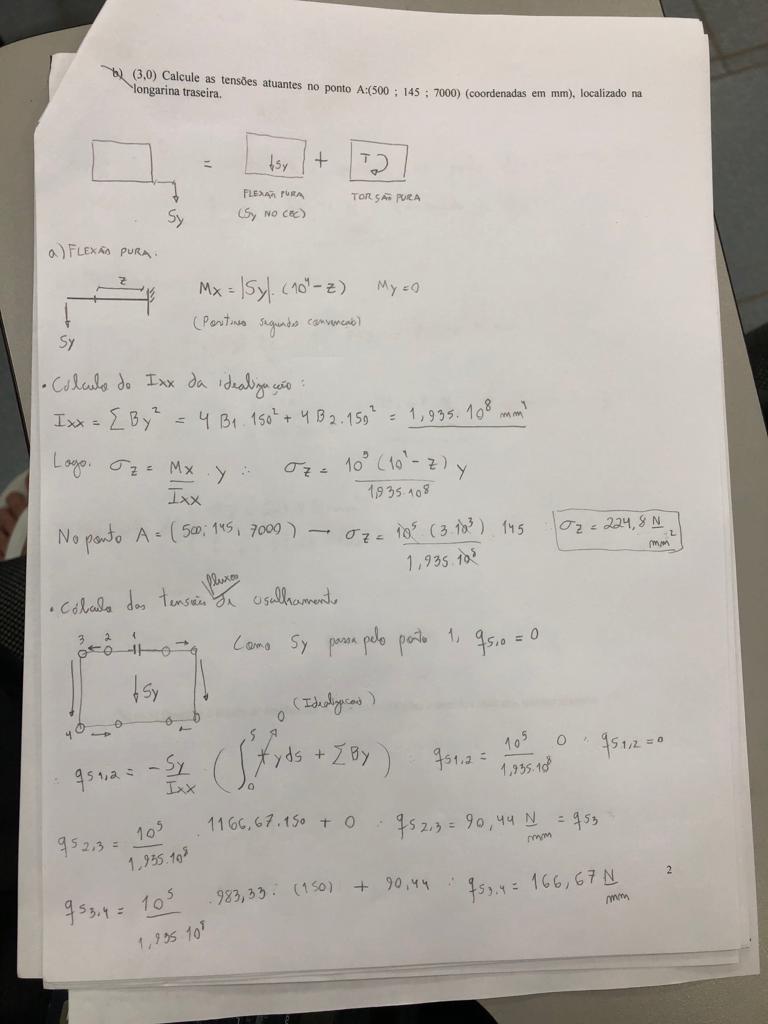 b) (3,0) Calcule as tensões atuantes no ponto A:(500 ; 145 ; 7000) (coordenadas em mm), localizado na
longarina traseira.
= ↓Sy + T
Sy
FLEXÃO PURA
(Sy NO CEC)
TORSÃO PURA
a) FLEXÃO PURA:
z
Sy
Mx = |Sy|. (10⁴ - z) My = 0
(Positivo segundo convenção)
• Cálculo do Ixx da idealização:
Ixx = ∑ By² = 4 B1 . 150² + 4 B2 . 150² = 1,935. 10⁸ mm⁴
Logo. σz = Mx/Ixx . y ∴ σz = 10⁵ (10⁴ - z)/1,935.10⁸ y
No ponto A = (500; 145; 7000) → σz = 10⁵ . (3.10³)/1,935.10⁸ . 145 σz = 224,8 N/mm²
• Cálculo das tensões fluxos de cisalhamento
3 2 1
↓Sy
4
Como Sy passa pelo ponto 1, qs,0 = 0
(Idealização)
∴ qs1,2 = - Sy/Ixx ( ∫₀ˢ t y ds 0 + ∑ By ) ∴ qs1,2 = 10⁵/1,935.10⁸ 0 ∴ qs1,2 = 0
qs2,3 = 10⁵/1,935.10⁸ . 1166,67.150 + 0 ∴ qs2,3 = 90,44 N/mm = qs3
qs3,4 = 10⁵/1,935.10⁸ . 983,33. (150) + 90,44 ∴ qs3,4 = 166,67 N/mm
2